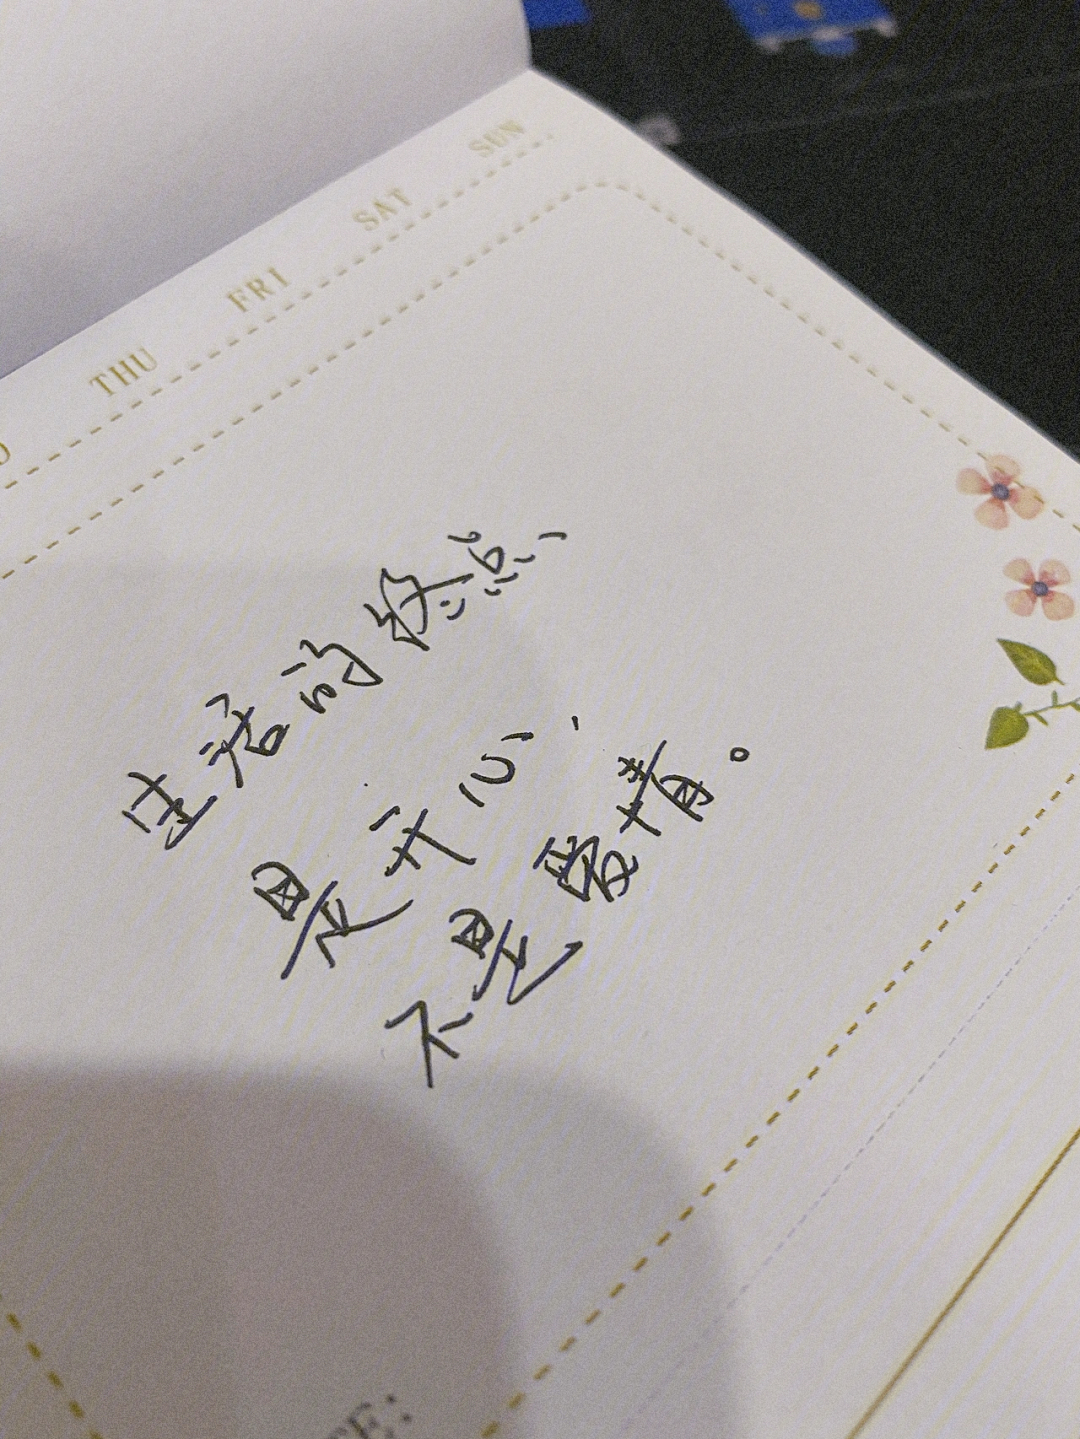 THU FRI SAT SUN
生活的终点、
是开心、
不是爱情。